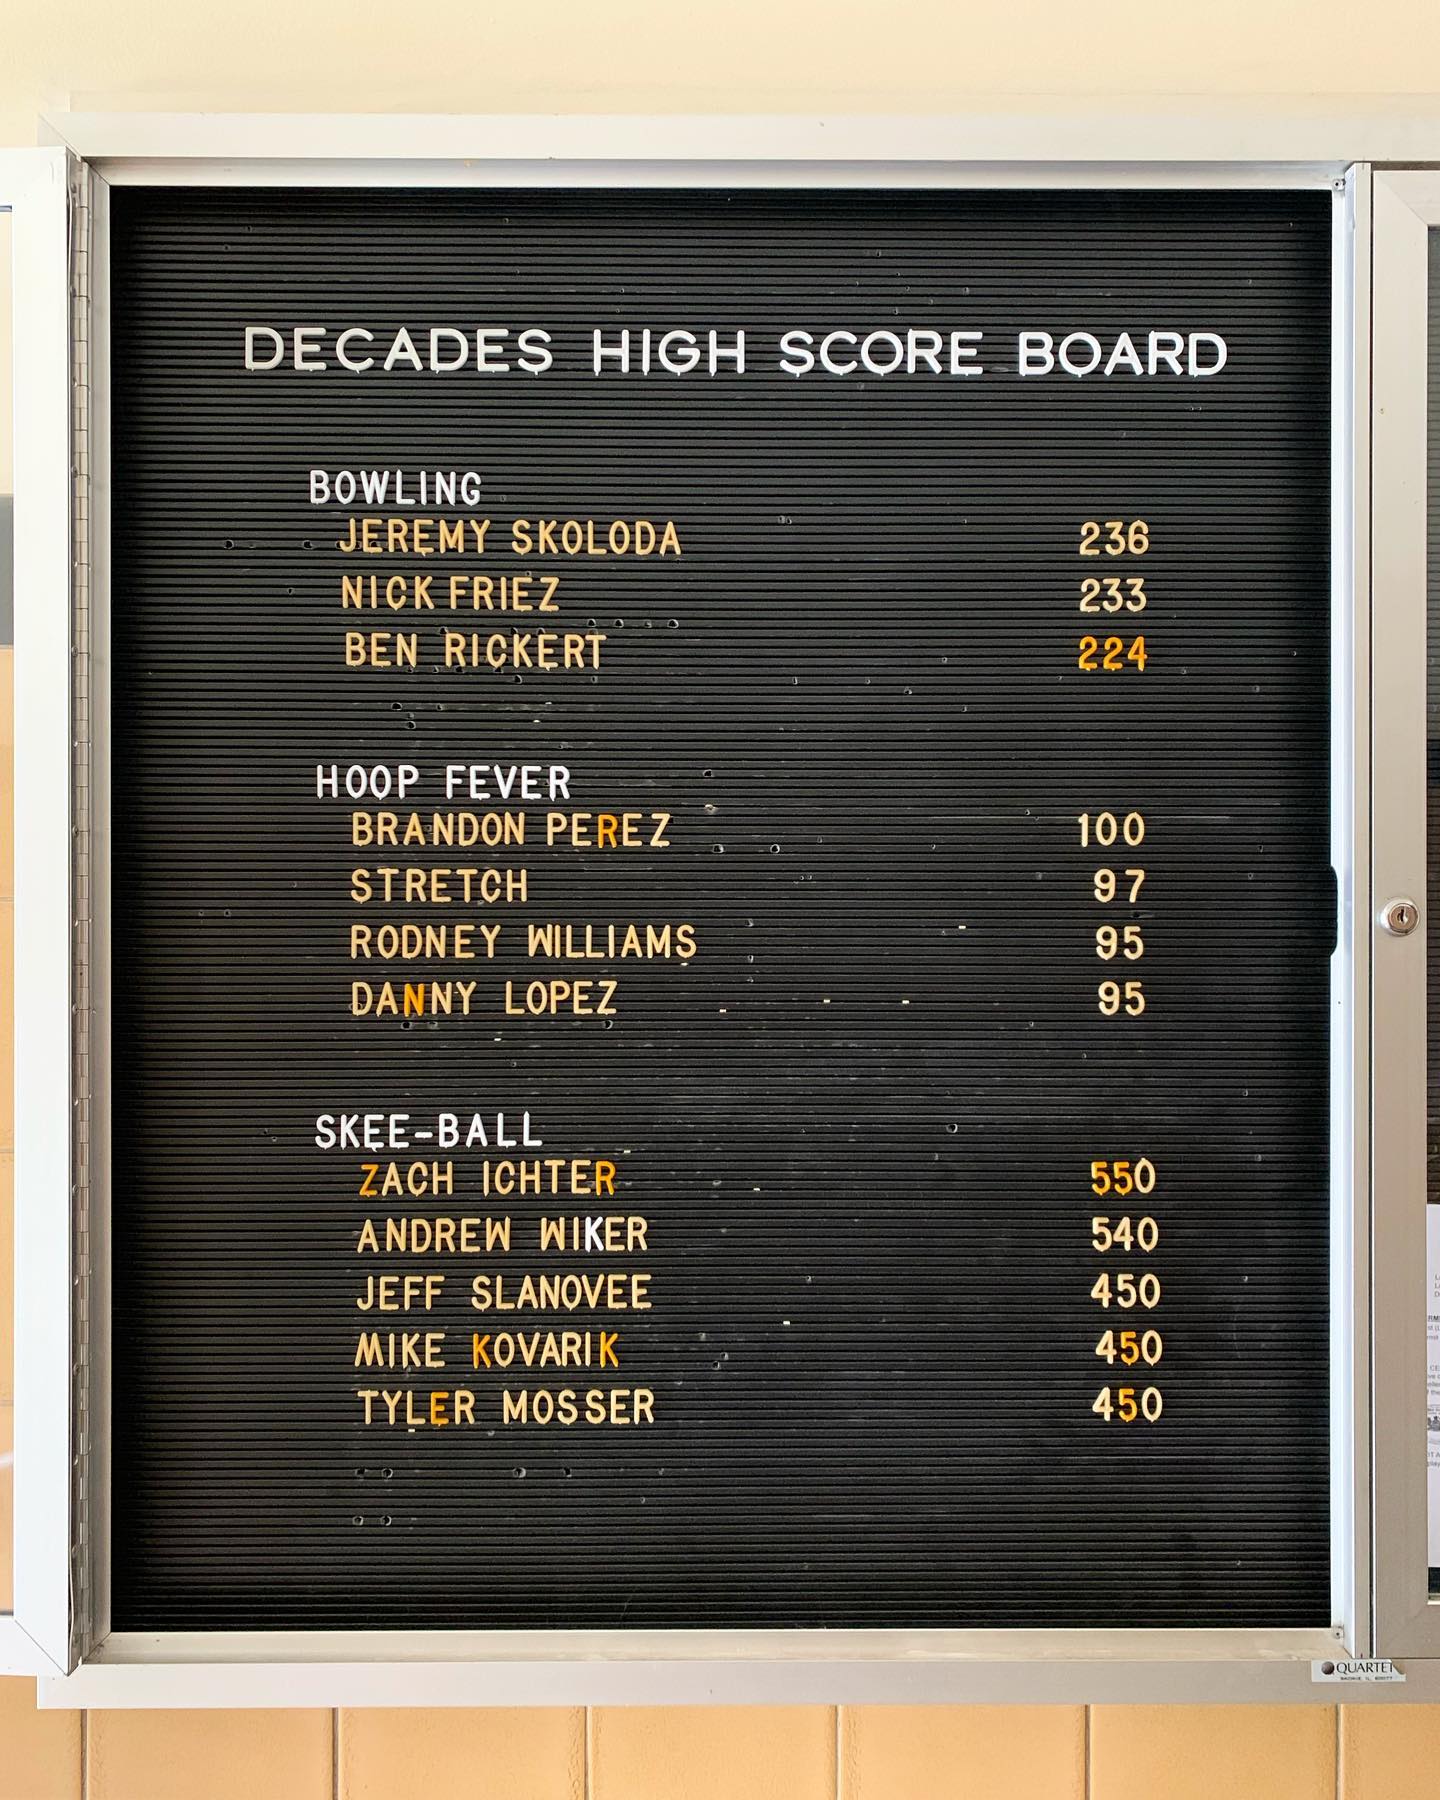 DECADES HIGH SCORE BOARD
BOWLING
JEREMY SKOLODA 236
NICK FRIEZ 233
BEN RICKERT 224
HOOP FEVER
BRANDON PEREZ 100
STRETCH 97
RODNEY WILLIAMS 95
DANNY LOPEZ 95
SKEE-BALL
ZACH ICHTER 550
ANDREW WIKER 540
JEFF SLANOVEE 450
MIKE KOVARIK 450
TYLER MOSSER 450
QUARTET